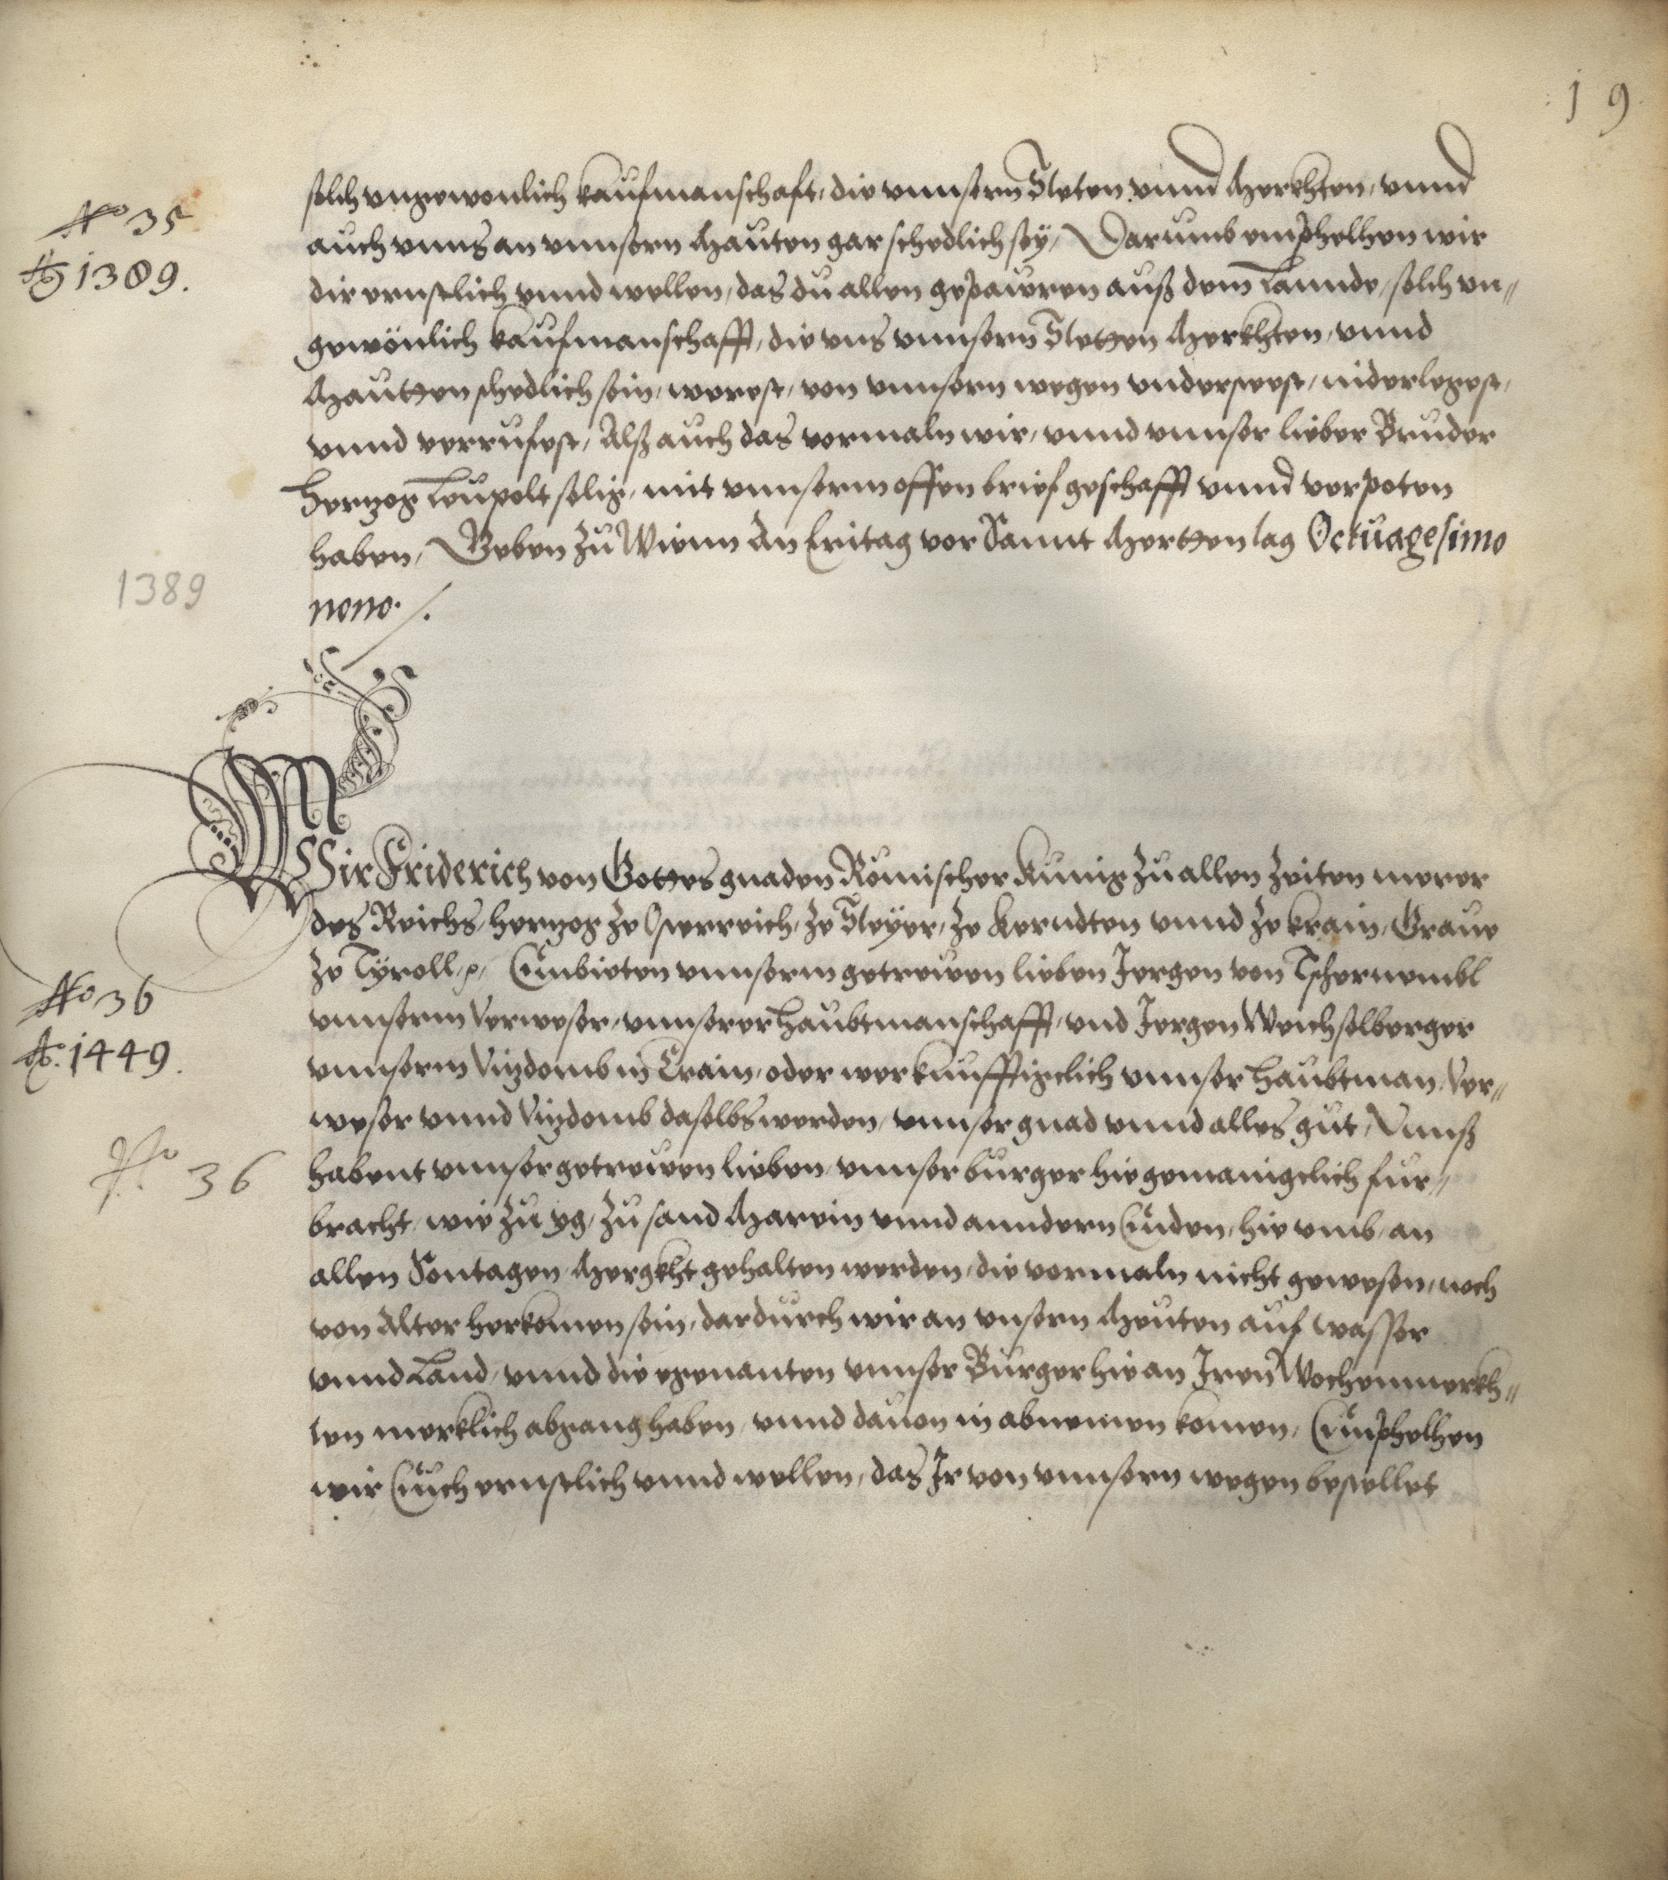 19
solch vngewonlich kaufmanschaft, die vnnsern Steten vnnd Merkhten, vnnd
No 35
auch vnns an vnnsern Mauten gar schedlich sey, Darumb emphelhen wir
Ao 1389.
dir ernstlich vnnd wellen, das du allen gepawren auß dem Lannde, solch vn„
gewönlich kaufmanschafft, die vns vnnsern Stetten Merkhten, vnnd
Mautten schedlich sein, werest, von vnnsern wegen vndersteest, niderlegest,
vnnd verrufest, Alß auch das vormaln wir, vnnd vnnser lieber Bruder
Hertzog Leupolt selig, mit vnnserm offen brief geschafft vnnd verpoten
haben, Geben zu Wienn An Eritag vor Sannt Mertten tag Octuagesimo
1389
nono.
Wir Friderich von Gottes gnaden Römischer Kunig zu allen Zeiten merer
des Reichs, Hertzog ze Osterreich, ze Steyer, ze Kerndten vnnd ze krain, Graue
ze Tyroll, Embieten vnnserm getrewen lieben Jorgen von Tschernembl
No 36
vnnserm Verweser, vnnserer Haubtmanschafft, vnd Jorgen Weichselberger
Ao. 1449.
vnnserm Vizdomb in Crain, oder wer kunfftigclich vnnser Haubtman, Ver„
weser vnnd Vizdomb daselbs werden, vnnser gnad vnnd alles gut, Vnnß
No 36
habent vnnser getrewen lieben, vnnser burger hie gemainigclich fur„
bracht, wie zu yg, zu sand Marein vnnd anndern Enden, hie vmb, an
allen Sontagen, Mergkht gehalten werden, die vormaln nicht gewesen, noch
von Alter herkomen sein, dardurch wir an vnsern Meuten auf wasser
vnnd Land, vnnd die egenanten vnnser Burger hie an Iren Wochenmerkh„
ten merklich abgang haben, vnnd dauon in abnemen komen, Emphelhen
wir Euch ernstlich vnnd wellen, das Ir von vnnsern wegen bestellet